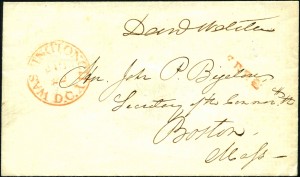 Danl Webster
WASHINGTON D.C.
FREE
Hon. John P. Bigelow
Secretary of the Commonwth
Boston
Mass